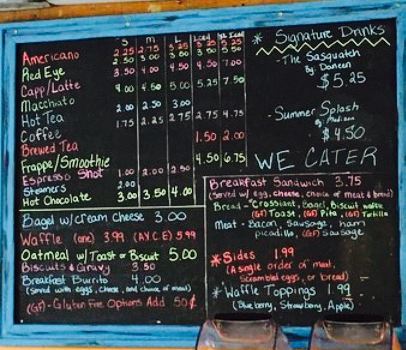 S M L Iced XL Iced
Americano 2.25 2.75 3.25 3.25 5.25
Red Eye 2.50 3.00 3.50 3.50 5.50
Capp/Latte 3.50 4.00 4.50 4.50 7.00
Macchiato 4.00 4.50 5.00 5.25 7.50
Hot Tea 2.00 2.50 3.00
Coffee 1.75 2.25 2.75 2.75 4.75
Brewed Tea 1.50 2.00
Frappe/Smoothie 4.50 6.75
Espresso Shot 1.00 2.00 2.50
Steamers 2.00
Hot Chocolate 3.00 3.50 4.00
Bagel w/Cream Cheese 3.00
Waffle (one) 3.99 (A.Y.C.E) 5.99
Oatmeal w/ Toast or Biscuit 5.00
Biscuits & Gravy 3.50
Breakfast Burrito 4.00
(Served with eggs, cheese, and choice of meat)
(GF) - Gluten Free Options Add 50¢
* Signature Drinks
- The Sasquatch
$5.25
- Summer Splash
By: Madison
$4.50
WE CATER
Breakfast Sandwich 3.75
(Served w/ egg, cheese, choice of meat & bread)
Bread - Croissiant, Bagel, Biscuit, waffle
(GF) Toast, (GF) Pita, (GF) Tortilla
Meat - Bacon, Sausage, ham
picadillo, (GF) Sausage
* Sides 1.99
(A single order of meat,
Scrambled eggs, or bread)
* Waffle Toppings 1.99
(Blueberry, Strawberry, Apple)